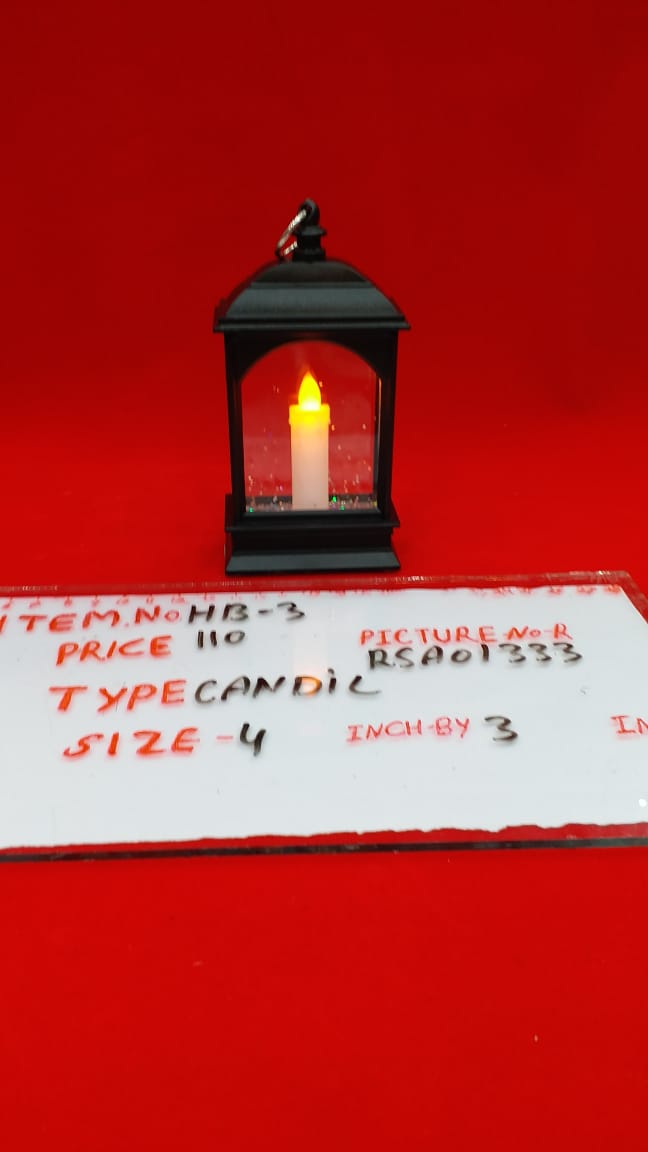 ITEM.No HB-3
PRICE 110
PICTURE-No-R
RSA01333
TYPE CANDIL
SIZE-4 INCH-BY 3 IN